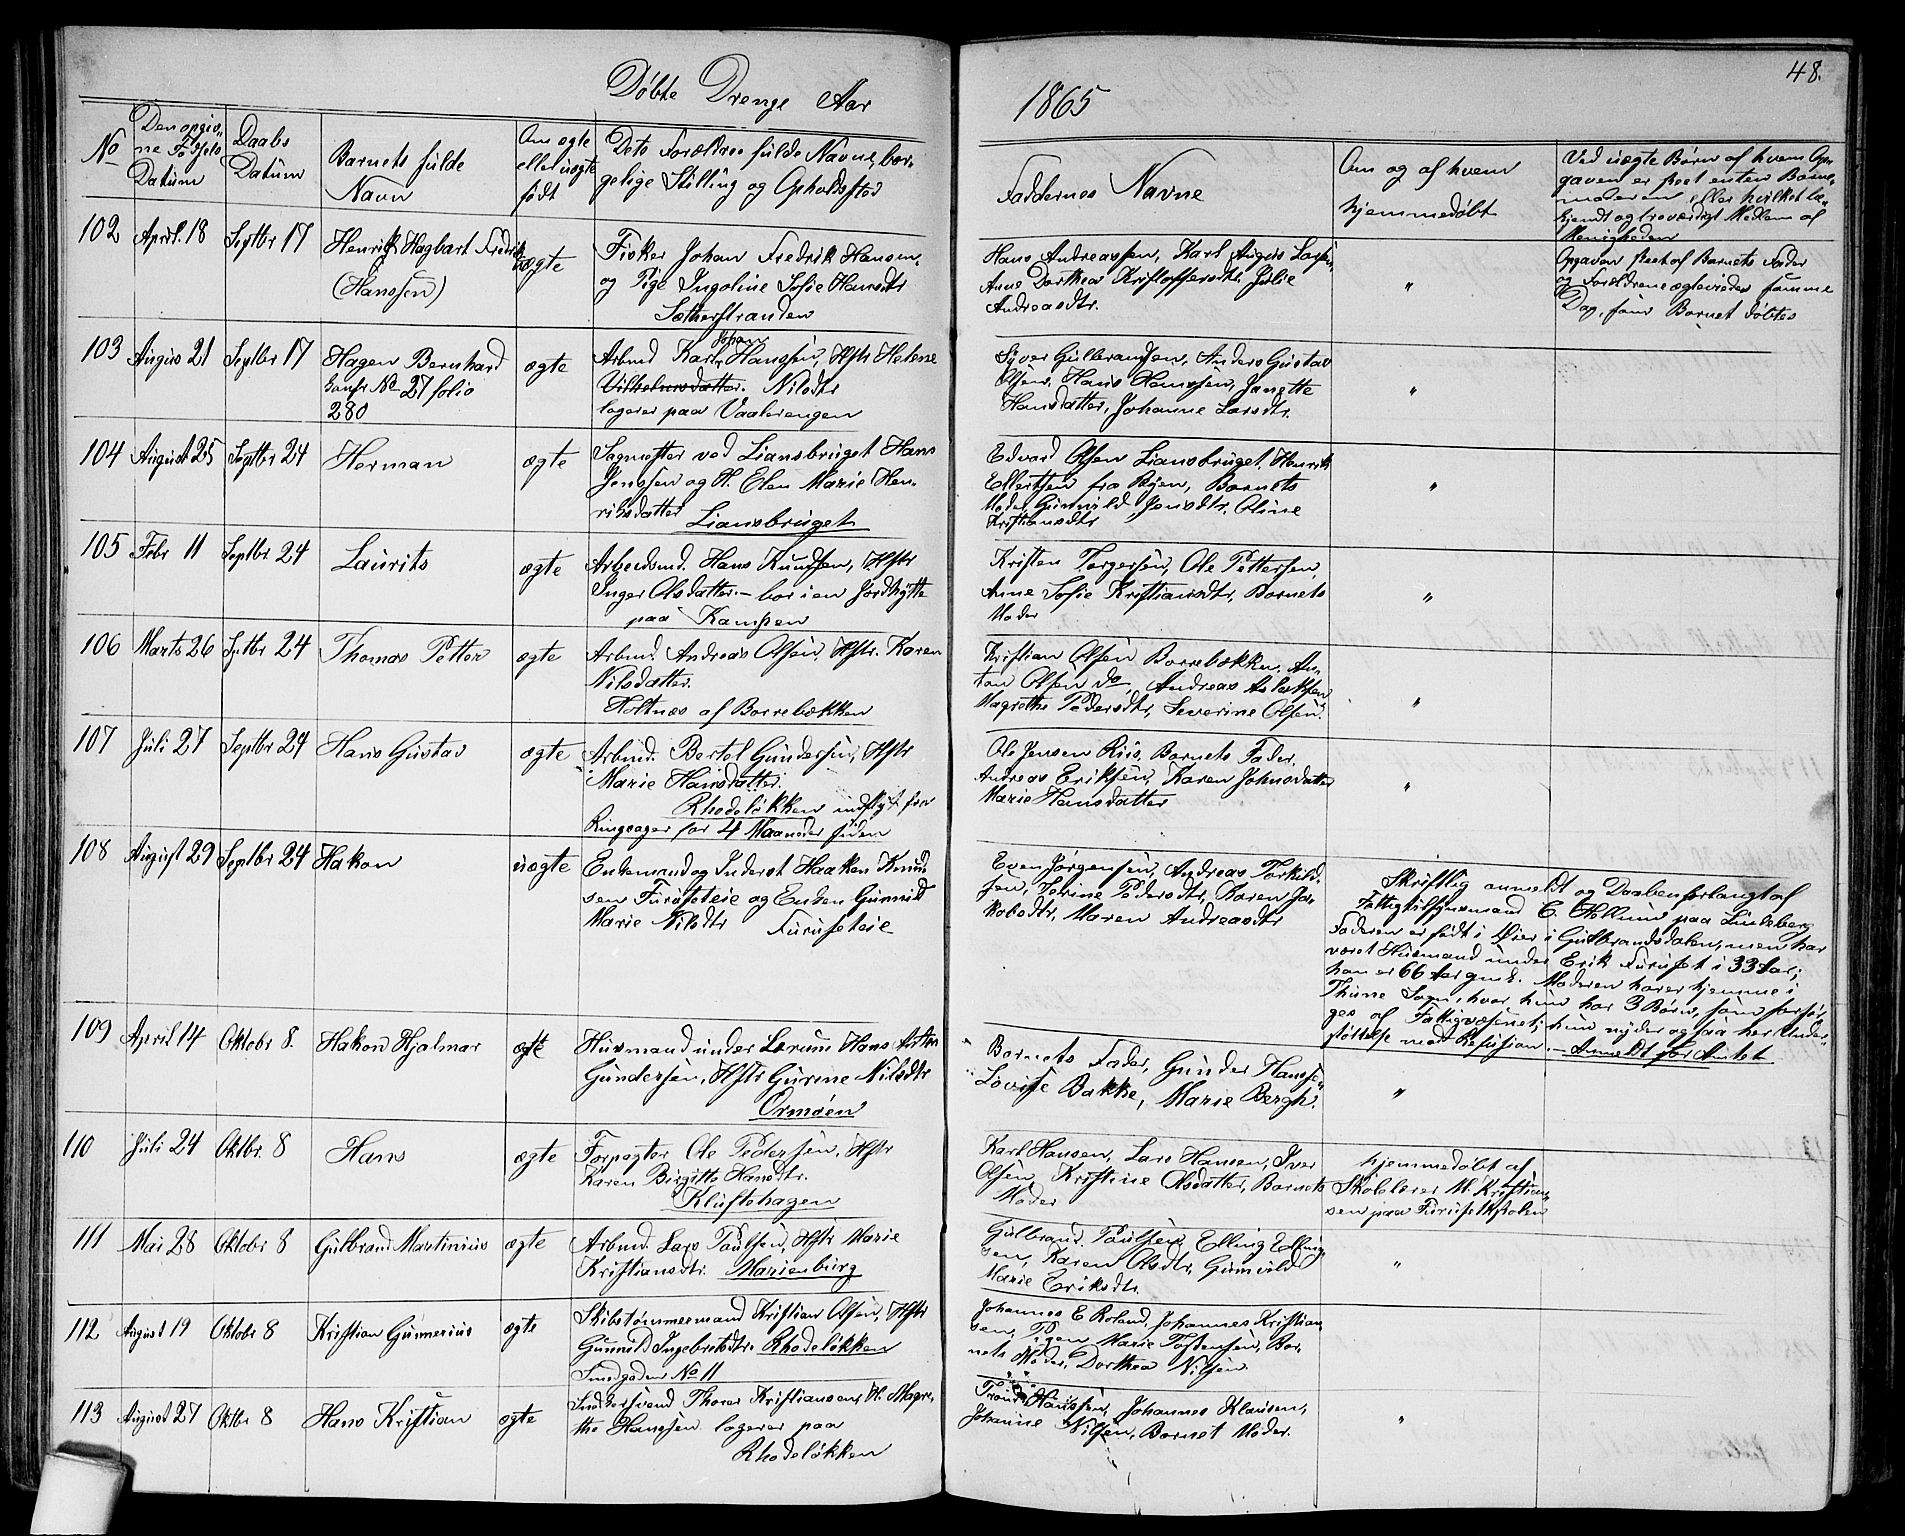 Döbte Drenge Aar
1865
48.
No
Den opgiv-
ne Födsels
Datum
Daabs
Datum
Barnets fulde
Navn
Om ægte
eller uægte
födt
Dets Forældres fulde Navne, bor-
gelige Stilling og Opholdssted
Faddernes Navne
Om og af hvem
hjemmedöbt
Ved uægte Börn af hvem Op-
gaven er skeet enten Barne-
moderen eller hvilket be-
kjendt og troværdigt Medlem af
Menigheden
102 April 18 Septbr 17 Henrik Hagbart Fredrik
(Hanssen)
uægte
Fisker Johan Fredrik Hansen
og Pige Ingoline Sofie Hansdtr
Sætherstranden
Hans Andreassen, Karl August Larsen,
Anne Dorthea Kristoffersdtr. Julie
Andreasdtr.
"
Opgaven skeet af Barnets Fader
og Forældrene ægteviedes samme
Dag, som Barnet döbtes
103 Augus 21 Septbr 17 Hagen Bernhard
Confr No 27 folio
280
ægte
Johan
Arbmd Karl Hanssen, Hstr Helene
Vilhelmsdatter. Nilsdtr
logerer paa Vaalerengen
Syver Gulbrandsen, Anders Gustav
Olsen, Hans Hanssen, Janette
Hansdatter, Johanne Larsdtr.
"
104 August 25 Septbr 24 Herman
ægte
Sagmester ved Liansbruget Hans
Jenssen og H. Elen Marie Hen-
riksdatter Liansbruget
Edvard Olsen Liansbruget, Henrik
Ellertsen fra Byen, Barnets
Moder, Gunvild Jensdtr. Oline
Kristiansdtr
"
105 Febr 11 Septbr 24 Laurits
ægte
Arbeidsmd. Hans Knudsen, Hstr
Inger Olsdatter - bor i en Jordhytte
paa Kampen
Kristen Torgersen, Ole Pettersen,
Anne Sofie Kristiansdtr, Barnets
Moder
"
106 Marts 26 Septbr 24 Thomas Petter
ægte
Arbmd. Andreas Olsen, Hstr. Karen
Nilsdatter.
Holtnæs af Borrebækken
Kristian Olsen Borrebækken. An-
ton Olsen do, Andreas Aslaksen
Magrethe Pedersdtr, Severine Olsen.
"
107 Juli 27 Septbr 24 Hans Gustav
ægte
Arbmd. Bertol Gundersen, Hstr
Marie Hansdatter.
Rhodelökken indflyt fra
Ringsager for 4 Maaneder siden
Ole Jensen Riis, Barnets Fader,
Andreas Eriksen, Karen Johnsdatter
Marie Hansdatter
"
108 August 29 Septbr 24 Hakon
uægte
Enkemand og Inderst Haaken Knud
sen Furuseteie og Enken Gunnild
Marie Nilsdtr Furuseteie
Even Jörgensen, Andreas Torkild-
sen, Petrine Pedersdtr, Karen Ja-
kobsdtr, Maren Andreasdtr
Skriftlig anmeldt og Daaben forlangt af
Fattigtilsynsmand C. Hollum paa Lindeberg
Faderen er födt i Öier i Gulbrandsdalen, men har
været Husmand under Erik Furuset i 33 Aar;
han er 66 Aar gml. Moderen hører hjemme i
Thune Sogn, hvor hun har 3 Börn, som forsør-
ges af Fattigvæsenet; hun nyder og paa her Under-
støttelse mod Refusion. - Anmeldt for Amtet
109 April 14 Oktobr 8. Hakon Hjalmar
ægte
Husmand under Lerum Hans Anton
Gundersen, Hstr Gurine Nilsdtr
Ormöen
Barnets Fader, Gunder Hanssen
Lovise Bakke, Marie Bergh.
"
110 Juli 24 Oktbr. 8 Hans
ægte
Forpagter Ole Pedersen, Hstr
Karen Birgitte Hansdtr.
Kluftehagen
Karl Hansen, Lars Hansen, Iver
Olsen, Kristine Olsdatter, Barnets
Moder
hjemmedöbt af
Skolelærer M. Kristian-
sen paa Furusetskolen
111 Mai 28 Oktobr 8 Gulbrand Martinius
ægte
Arbmd. Lars Paulsen, Hstr Marie
Kristiansdtr. Marienburg
Gulbrand Paulsen, Elling Elling-
sen, Karen Olsdtr, Gunvild
Marie Eriksdtr.
"
112 August 19 Oktobr 8 Kristian Gunnerius
ægte
Skibstömmermand Kristian Olsen, Hstr
Gunnild Ingebretsdtr. Rhodelökken
Smedgaden No 11
Johannes E Roland, Johannes Kristian-
sen, Pigen Marie Tostensen, Bar-
nets Moder, Dorthea Nilsen
113 August 27 Oktbr 8 Hans Kristian
ægte
Smedesvend Thorer Kristiansen, H. Magre-
the Hanssen logerer paa
Rhodelökken
Trond Hanssen, Johannes Klausen,
Johanne Nilsen, Barnet Moder.
"